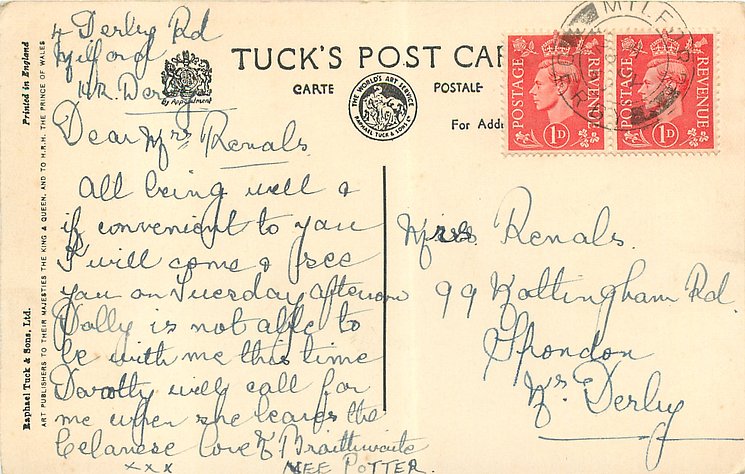 4 Derby Rd
Milford
Nr. Derby
Dear Mrs Renals.
All being well &
if convenient to you
I will come & see
you on Tuesday afternoon
Dolly is not able to
be with me this time
Dorothy will call for
me when she leaves the
Celanese love Braithwaite
xxx NEE POTTER.
TUCK'S POST CAR
CARTE POSTALE
By Appointment
THE WORLD'S ART SERVICE
RAPHAEL TUCK & SONS LTD
For Addr
POSTAGE REVENUE
1D
POSTAGE REVENUE
1D
MILFORD
DERBY
Mrs Renals.
99 Nottingham Rd.
Spondon
Nr. Derby
Printed in England
Raphael Tuck & Sons, Ltd.
ART PUBLISHERS TO THEIR MAJESTIES THE KING & QUEEN, AND TO H.R.H. THE PRINCE OF WALES